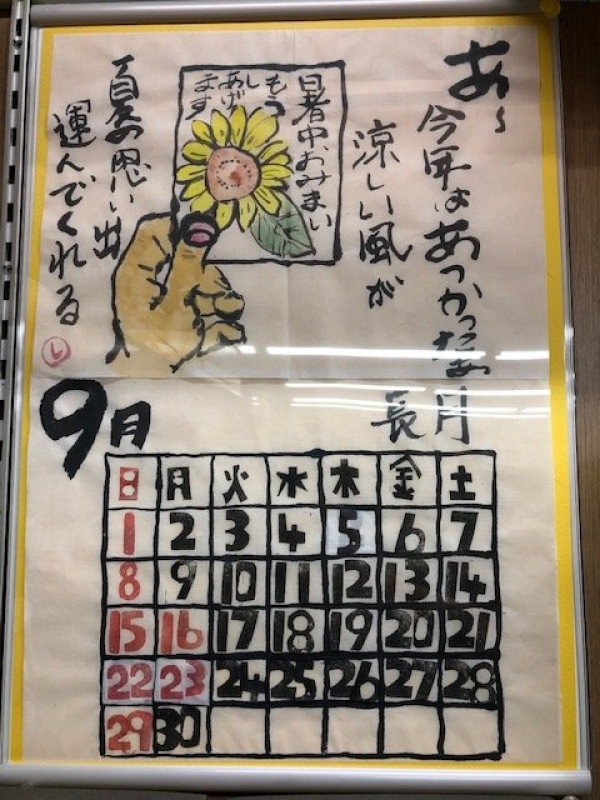 あ〜
今年はあつかったなあ
涼しい風が
暑中おみまい
もうし
あげ
ます
夏の思い出
運んでくれる
し
長月
9月
日 月 火 水 木 金 土
1 2 3 4 5 6 7
8 9 10 11 12 13 14
15 16 17 18 19 20 21
22 23 24 25 26 27 28
29 30